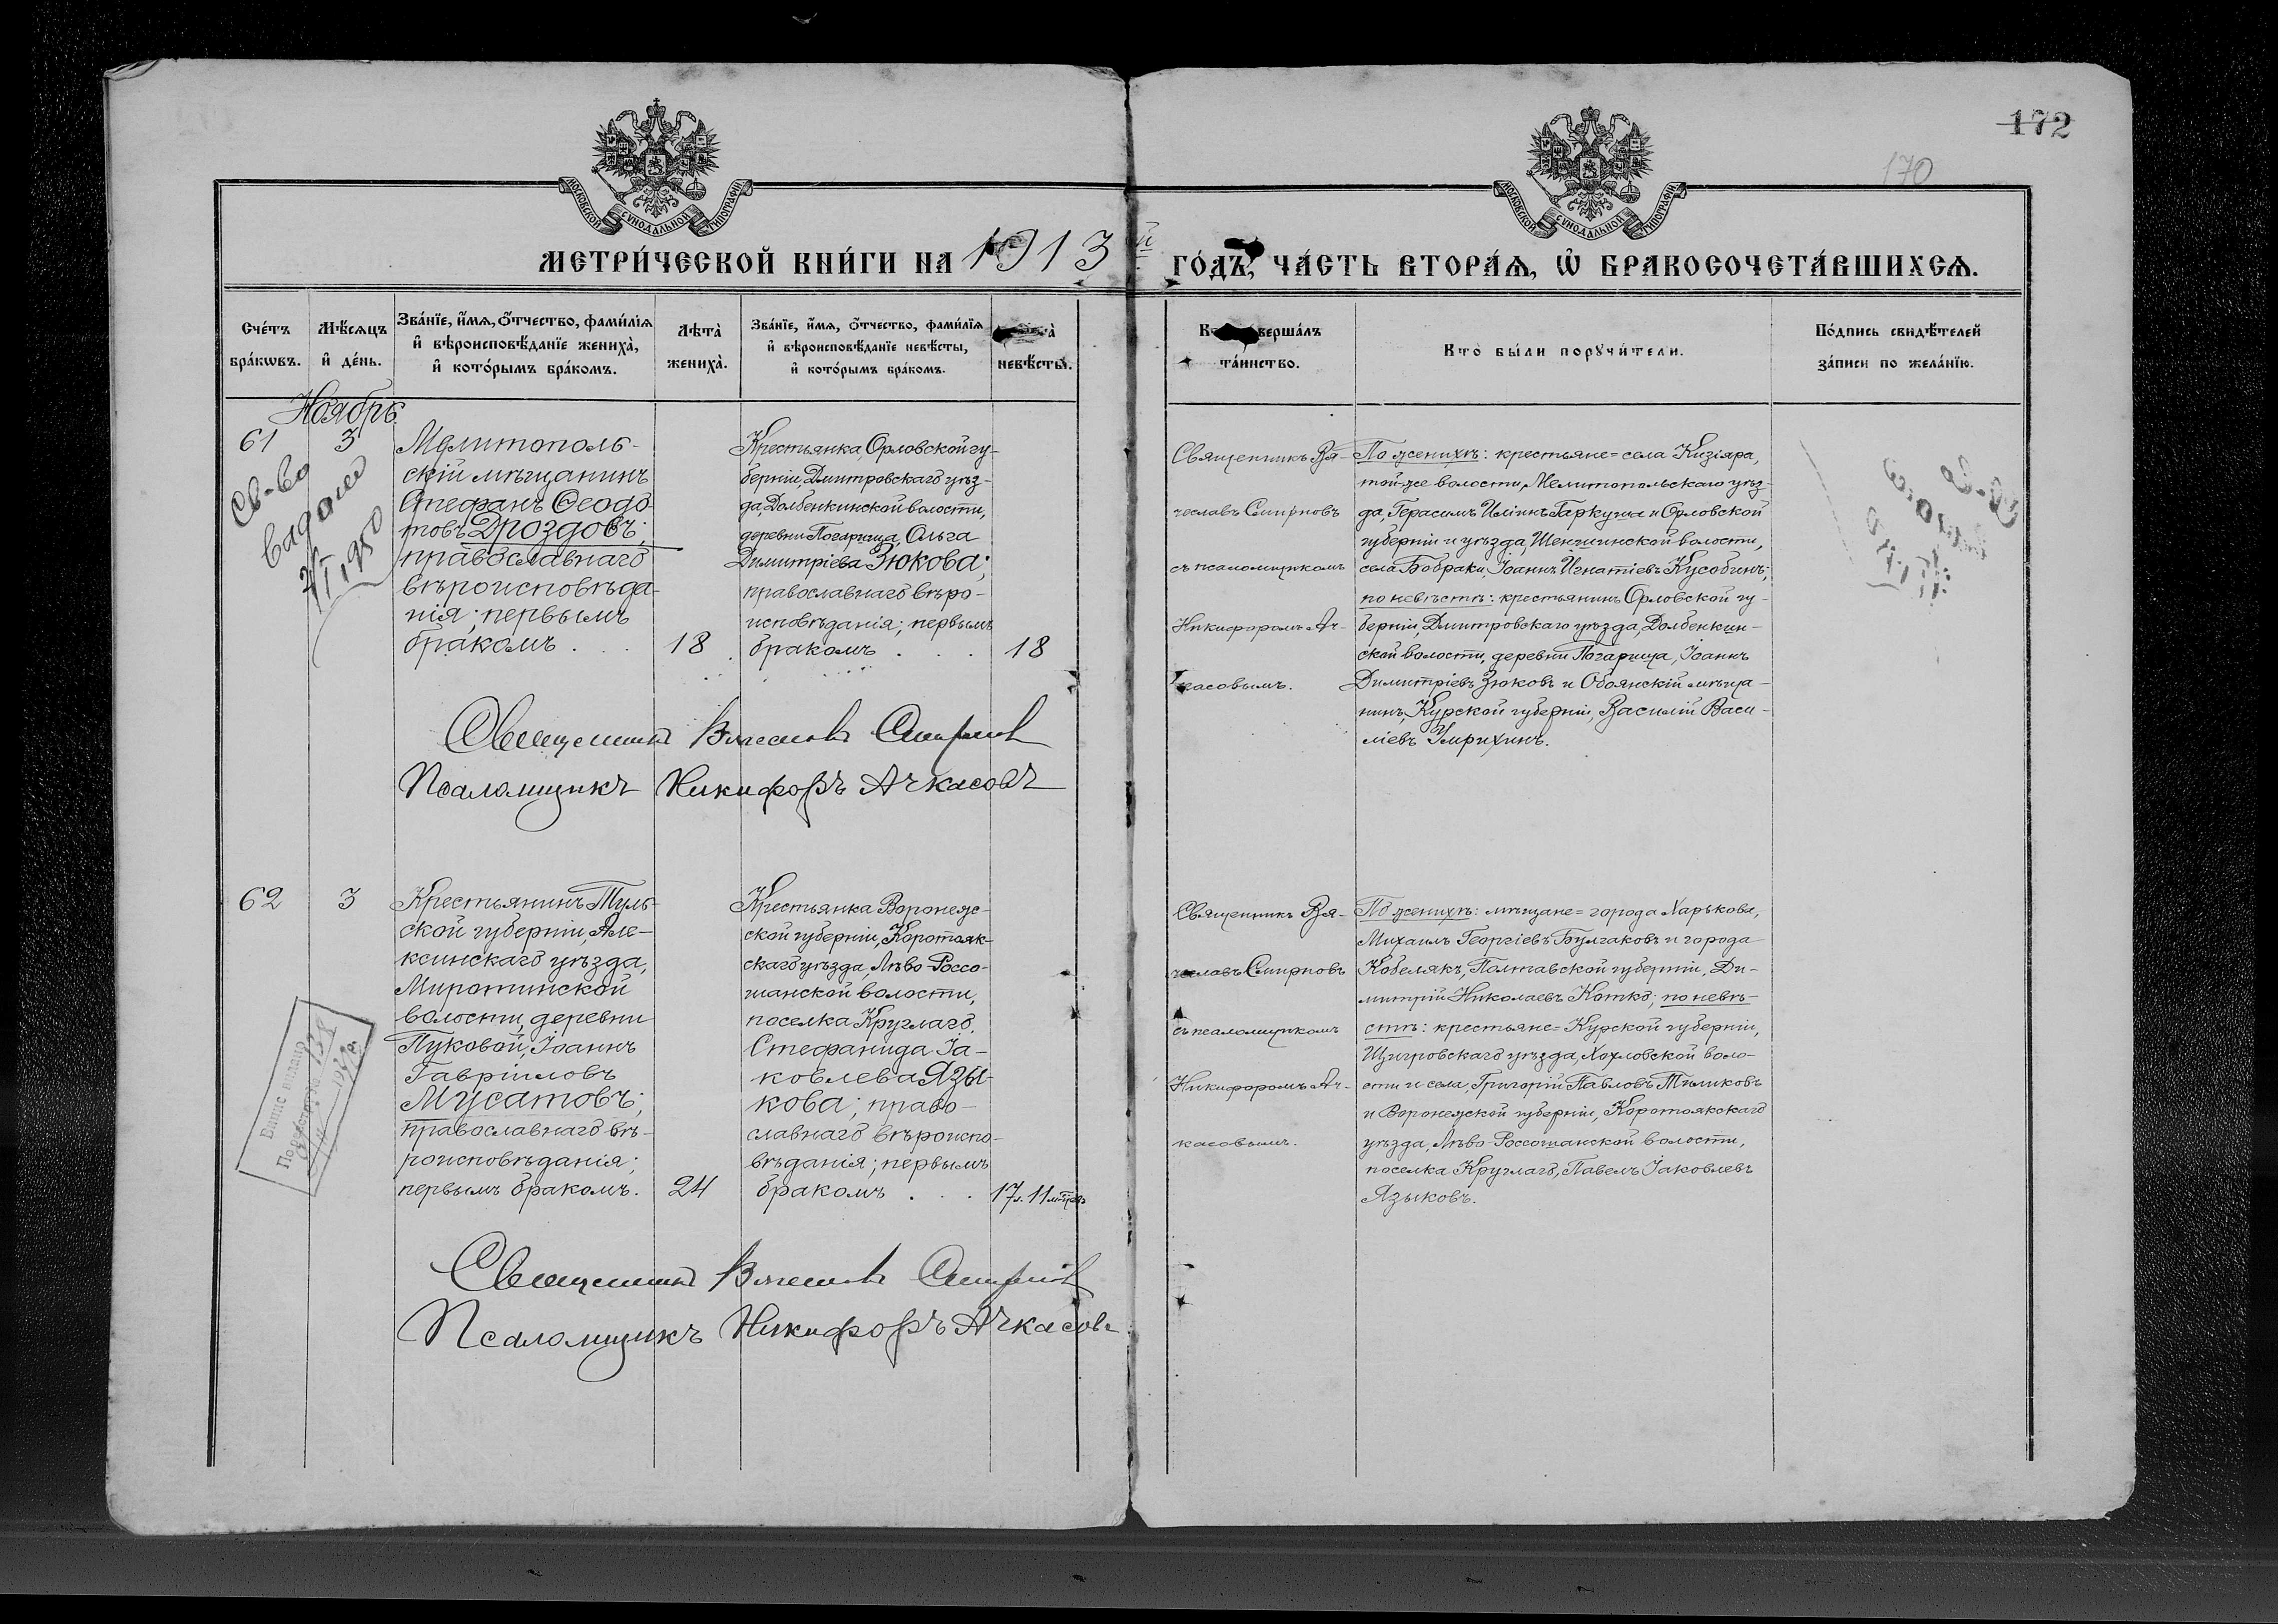 172
170
МОСКОВСКОЙ СѴНОДАЛЬНОЙ ТИПОГРАФІИ
МОСКОВСКОЙ СѴНОДАЛЬНОЙ ТИПОГРАФІИ
МЕТРИ́ЧЕСКОЙ КНИ́ГИ НА 1913 й ГО́ДЪ, ЧА́СТЬ ВТОРА́Ѧ, Ѽ БРАКОСОЧЕТА́ВШИХСѦ.
Сче́тъ
бра́кѡвъ.
Мѣ́сѧцъ
и҆ де́нь.
Зва́нїе, и҆́мѧ, о҆́тчество, фами́лїѧ
и҆ вѣроисповѣ́данїе жениха̀,
и҆ кото́рымъ бра́комъ.
Лѣта̀
жениха̀.
Зва́нїе, и҆́мѧ, о҆́тчество, фами́лїѧ
и҆ вѣроисповѣ́данїе невѣ́сты,
и҆ кото́рымъ бра́комъ.
невѣ́сты.
верша́лъ
та́инство.
Кто̀ бы́ли порꙋчи́тели.
По́дпись свидѣ́телей
за́писи по жела́нїю.
Ноябрь.
61
3
Св-во
выдано
1950
Мелитополь-
скій мѣщанинъ
Стефанъ Ѳеодо-
товъ Дроздовъ;
православнаго
вѣроисповѣда-
нія; первымъ
бракомъ . . .
18
Крестьянка Орловской гу-
берніи, Дмитровскаго уѣз-
да, Долбенкинской волости,
деревни Погарища, Ольга
Димитріева Зюкова;
православнаго вѣро-
исповѣданія; первымъ
бракомъ . . .
18
Священникъ Вя-
чеславъ Смирновъ
съ псаломщикомъ
Никифоромъ Ач-
касовымъ.
По женихѣ: крестьяне= села Кизіяра,
той-же волости, Мелитопольскаго уѣз-
да, Герасимъ Иліинъ Гаркуша и Орловской
губерніи и уѣзда, Шеншинской волости,
села Бобраки, Іоаннъ Игнатіевъ Кусобинъ;
по невѣстѣ: крестьянинъ Орловской гу-
берніи, Дмитровскаго уѣзда, Долбенкин-
ской волости, деревни Погарища, Іоаннъ
Димитріевъ Зюковъ и Обоянскій мѣща-
нинъ, Курской губерніи, Василій Васи-
ліевъ Умрихинъ.
Священникъ Вячеславъ Смирновъ
Псаломщикъ Никифоръ Ачкасовъ
62
3
Крестьянинъ Туль-
ской губерніи, Але-
ксинскаго уѣзда,
Миротинской
волости, деревни
Пуковой, Іоаннъ
Гавріиловъ
Мусатовъ;
православнаго вѣ-
роисповѣданія;
первымъ бракомъ.
24
Крестьянка Воронеж-
ской губерніи, Коротояк-
скаго уѣзда, Лѣво-Россо-
шанской волости,
поселка Круглаго,
Стефанида Іа-
ковлева Язы-
кова; право-
славнаго вѣроиспо-
вѣданія; первымъ
бракомъ . . .
17 л. 11 мѣсяц.
Священникъ Вя-
чеславъ Смирновъ
съ псаломщикомъ
Никифоромъ Ач-
касовымъ.
По женихѣ: мѣщане= города Харькова,
Михаилъ Георгіевъ Булгаковъ и города
Кобелякъ, Полтавской губерніи, Ди-
митрій Николаевъ Котко; по невѣ-
стѣ: крестьяне= Курской губерніи,
Щигровскаго уѣзда, Хохловской воло-
сти и села, Григорій Павловъ Тѣликовъ
и Воронежской губерніи, Коротоякскаго
уѣзда, Лѣво-Россошанской волости,
поселка Круглаго, Павелъ Іаковлевъ
Языковъ.
Священникъ Вячеславъ Смирновъ
Псаломщикъ Никифоръ Ачкасовъ